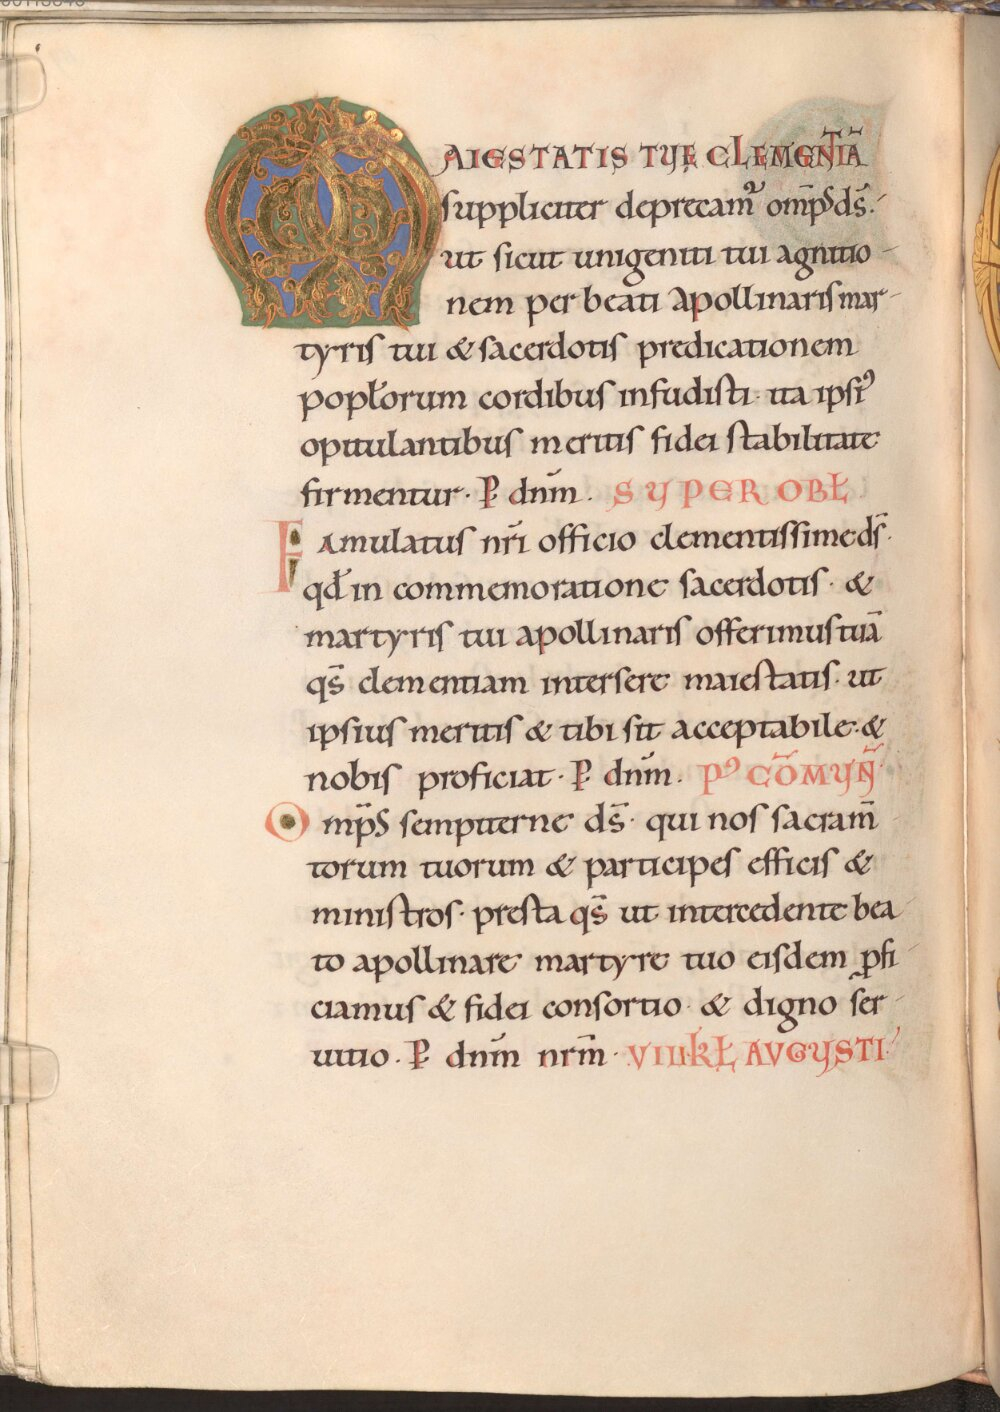 MAIESTATIS TUE CLEMENTIĀ
suppliciter deprecam᷒ omp̄s ds̄.
ut sicut unigeniti tui agnitio
nem per beati apollinaris mar
tyris tui & sacerdotis predicationem
popłorum cordibus infudisti· ita ipsiꝰ
opitulantibus meritis fidei stabilitate
firmentur· P̱ dnm̄. SUPER OBŁ
Famulatus nr̄i officio clementissime ds̄·
qđ in commemoratione sacerdotis· &
martyris tui apollinaris offerimus tuā
qs̄ clementiam intersere maiestatis· ut
ipsius meritis & tibi sit acceptabile· &
nobis proficiat· P̱ dnm̄. Pꝰ CŌMUN̄
Omp̄s sempiterne ds̄· qui nos sacram̄
torum tuorum & participes efficis &
ministros· presta qs̄ ut intercedente bea
to apollinare martyre tuo eisdem ꝓfi
ciamus & fidei consortio· & digno ser
uitio· P̱ dnm̄ nrm̄· VIIII KŁ AVGUSTI